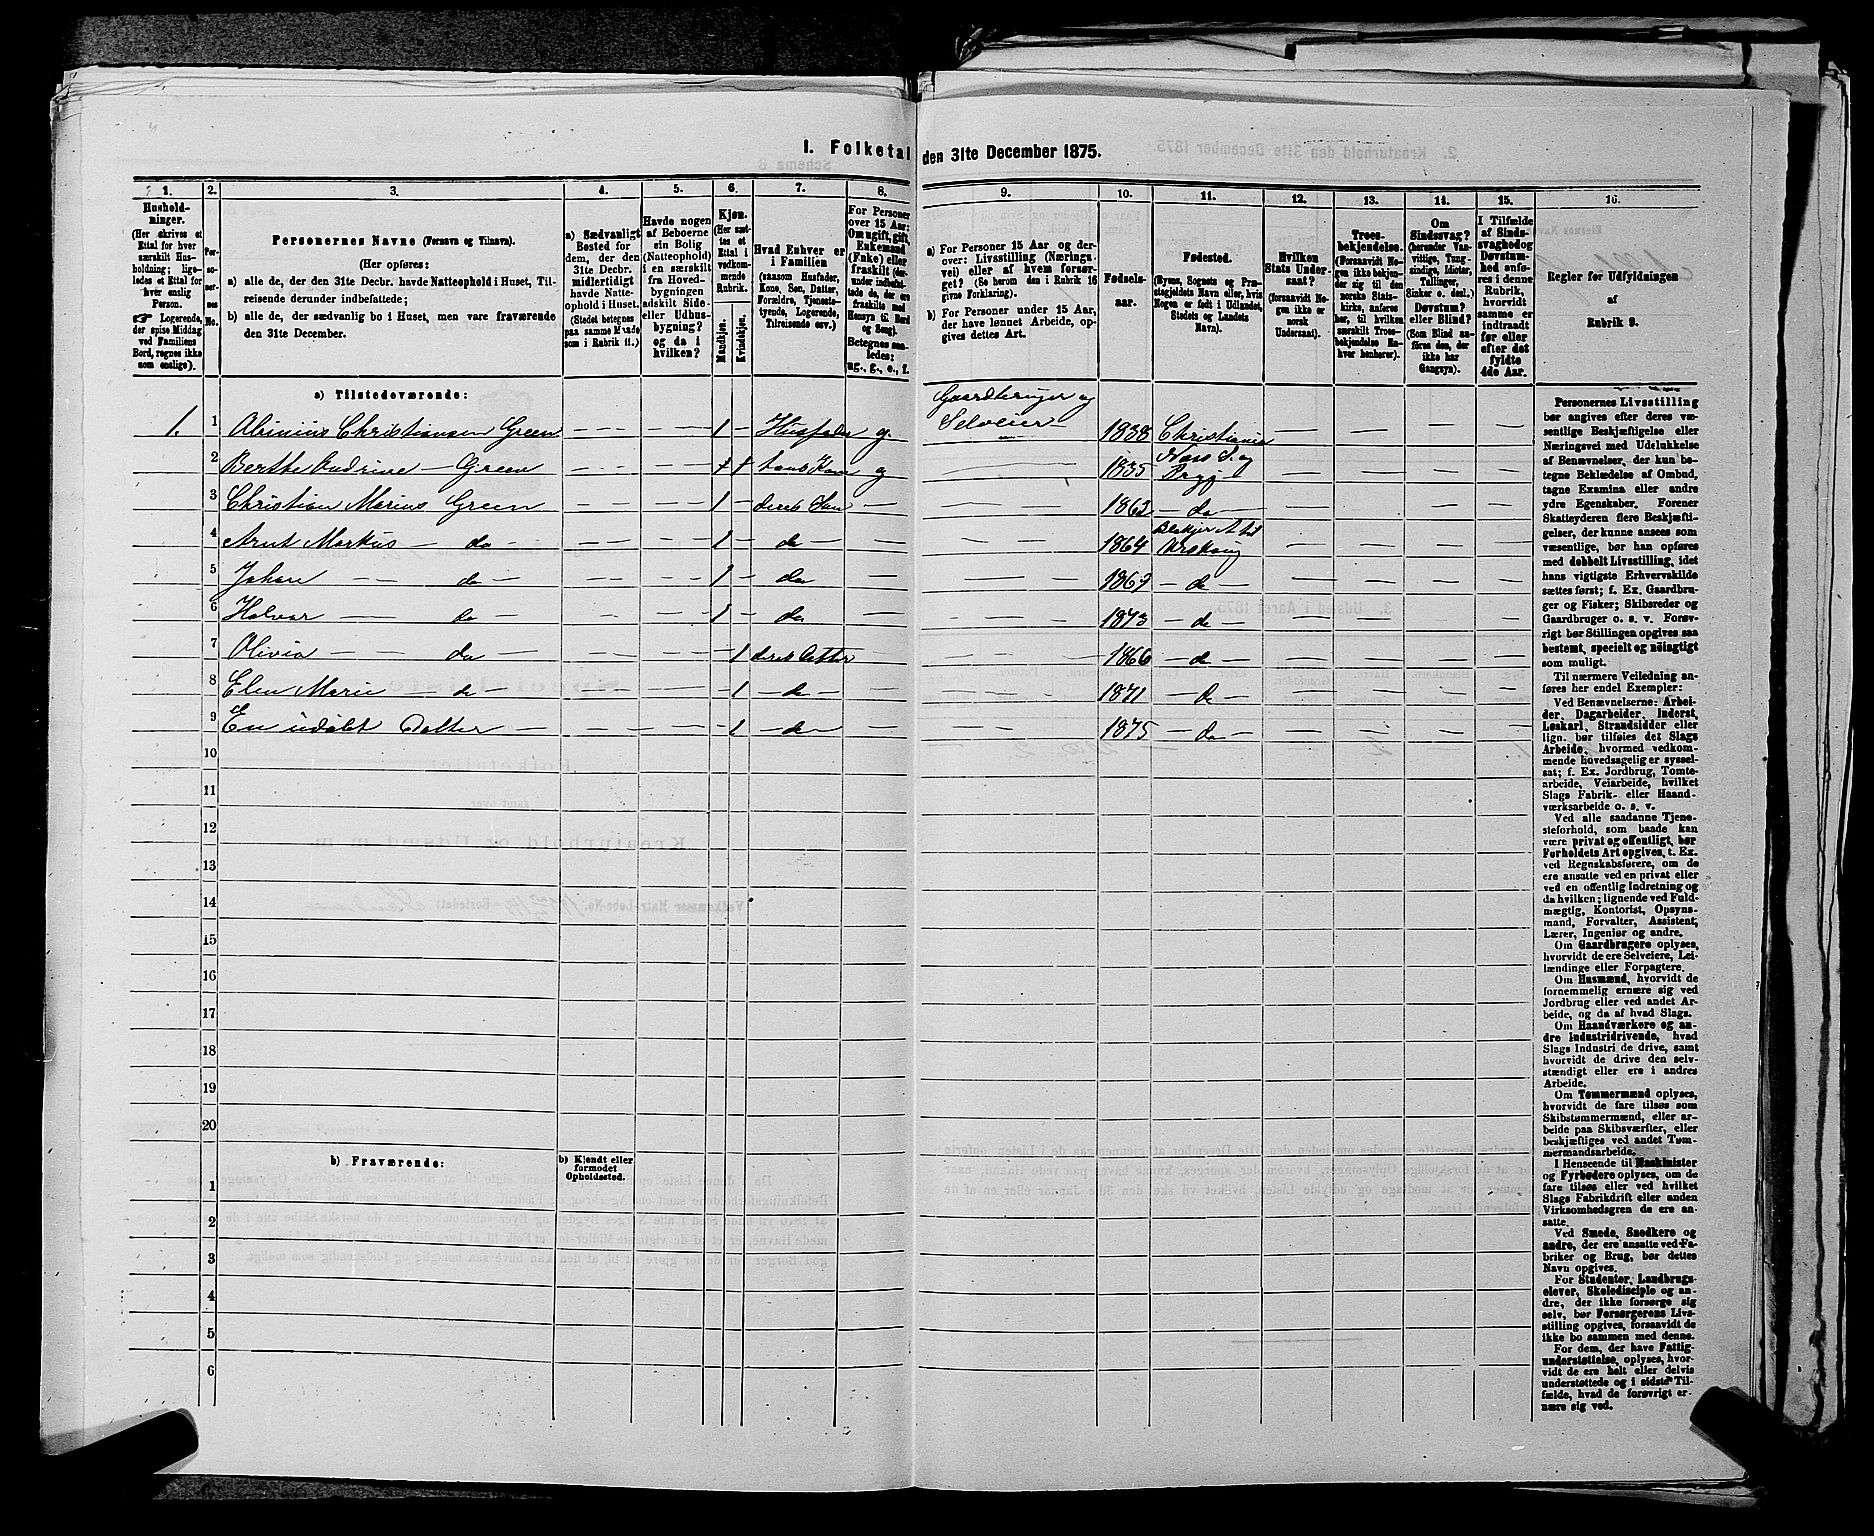 I. Folketal den 31te December 1875.
1. 2. 3. 4. 5. 6. 7. 8. 9. 10. 11. 12. 13. 14. 15. 16.
Husholdninger.
(Her skrives et
Ettal for hver
særskilt Husholdning;
ligeledes et Ettal for
hver enslig
Person.
Logerende,
der spise Middag
ved Familiens
Bord, regnes ikke
som enslige).
Personernes No.
Personernes Navne (Fornavn og Tilnavn).
(Her opføres:
a) alle de, der den 31te Decbr. havde Natteophold i Huset, Tilreisende derunder indbefattede;
b) alle de, der sædvanlig bo i Huset, men vare fraværende
den 31te December.
a) Sædvanligt
Bosted for
dem, der den
31te Decbr.
midlertidigt
havde Natteophold i Huset.
(Stedet betegnes
paa samme Maade
som i Rubrik 11.)
Havde nogen
af Beboerne
ein Bolig
(Natteophold)
i en særskilt
fra Hovedbygningen
adskilt Side-
eller Udhusbygning?
og da i
hvilken?
Kjøn.
(Her sættes et
Ettal i
vedkommende
Rubrik.
Mandkjøn.
Kvindekjøn.
Hvad Enhver er
i Familien
(saasom Husfader,
Kone, Søn, Datter,
Forældre, Tjenestetyende, Logerende,
Tilreisende osv.)
For Personer
over 15 Aar:
Om ugift, gift,
Enkemand
(Enke) eller
fraskilt
Betegnes saaledes:
ug., g., e., f.
a) For Personer 15 Aar og derover: Livsstilling (Næringsvei) eller af hvem forsørget? (Se herom den i Rubrik 16
givne Forklaring).
b) For Personer under 15 Aar,
der have lønnet Arbeide, opgives dettes Art.
Fødselsaar.
Fødested.
(Byens, Sognets og Præstegjeldets Navn eller, hvis
Nogen er født i Udlandet,
Stedets og Landets
Navn).
Hvilken
Stats Undersaat?
(forsaavidt Nogen ikke er
norsk
Undersaat).
Troesbekjendelse.
(Forsaavidt Nogen ikke bekjender sig til den
norske Statskirke, anføres
her, til hvilken
særskilt Troesbekjendelse Enhver henhører).
Om
Sindssvag?
(herunder Vanvittige, Tungsindige, Idioter,
Tullinger,
Sinker o. desl.)
Døvstum?
eller Blind?
(Som Blind anføres den, der
ikke har
Gangsyn).
I Tilfælde
af Sindssvaghed og
Døvstumhed anføres i denne
Rubrik,
hvorvidt
samme er
indtraadt
før eller
efter det
fyldte
4de Aar.
Regler for Udfyldningen
af
Rubrik 9.
a) Tilstedeværende:
Gaardbruger og
1. 1 Christiansen Green — — 1 Husfader g. Selveier 1838 Christiania
2 Berthe Andrine — Green — — 1 hans Kone g 1835 Næs S. og Prgj
3 Christian Marius Green — — 1 — deres Søn — 1862 — do —
4 Arnt Markus — do — — 1 — do — 1864 Blakjer A til Urskoug
5 Johan — do — — 1 — do — — do —
6 Halvor — do — — 1 — do — 1873 — do —
7 Olivia — do — — 1 deres Datter — 1866 — do —
8 Elen Marie — do — — 1 — do — 1871 — do —
9 En udøbt Datter — — 1 — do — 1875 — do —
10
11
12
13
14
15
16
17
18
19
20
b) Fraværende:
b) Kjendt eller
formodet
Opholdssted.
1
2
3
4
5
6
Personernes Livsstilling
bør angives efter deres væsentlige Beskjæftigelse eller
Næringsvei med Udelukkelse
af Benævnelser, der kun betegne Beklædelse af Ombud,
tagne Examina eller andre
ydre Egenskaber. Forener
Skatteyderen flere Beskjæftigelser, der kunne ansees som
væsentlige, bør han opføres
med dobbelt Livsstilling, idet
hans vigtigste Erhvervskilde
sættes først; f. Ex. Gaardbruger og Fisker; Skibsreder og
Gaardbruger o. s. v. Forøvrigt bør Stillingen opgives saa
bestemt, specielt og nöiagtigt
som muligt.
Til nærmere Veiledning anføres her endel Exempler:
Ved Benævnelserne: Arbeider, Dagarbeider, Inderst,
Løskarl, Strandsidder eller
lign. bør tilføies det Slags
Arbeide, hvormed vedkommende hovedsagelig er sysselsat; f. Ex. Jordbrug, Tomtearbeide, Veiarbeide, hvilket
Slags Fabrik- eller Haandværksarbeide o. s. v.
Ved alle saadanne Tjenesteforhold, som baade kan
være privat og offentligt, bør
Forholdets Art opgives, t. Ex.
ved Regnskabsførere, om de
ere ansatte ved en privat eller
ved en offentlig Indretning og
da hvilken; lignende ved Fuldmægtig, Kontorist, Opsynsmand, Forvalter, Assistent,
Lærer, Ingeniør og andre.
Om Gaardbrugere oplyses,
hvorvidt de ere Selveiere, Leilændinge eller Forpagtere.
Om Husmænd, hvorvidt de
fornemmelig ernære sig ved
Jordbrug eller ved andet Arbeide, og da af hvad Slags.
Om Haandværkere og andre Industridrivende, hvad
Slags Industri de drive, samt
hvorvidt de drive den selvstændigt eller ere i andres
Arbeide.
Om Tømmermænd oplyses,
hvorvidt de fare tilsøs som
Skibstømmermænd, eller arbeide paa Skibsværfter, eller
beskjæftiges ved andet Tømmermandsarbeide.
I Henseende til Maskinister
og Fyrbødere oplyses, om de
fare tilsøs eller ved hvilket
Slags Fabrikdrift eller anden
Virksomhedsgren de ere ansatte.
Ved Smede, Snedkere og
andre, der ere ansatte ved Fabriker og Brug, bør dettes
Navn opgives.
For Studenter, Landbrugselever, Skoledisciple og andre, der ikke forsørge sig
selv, bør Forsørgerens Livsstilling opgives, forsaavidt de
ikke bo sammen med denne.
For dem, der have Fattigunderstøttelse, oplyses, hvorvidt de ere helt eller delvis
understøttede og i sidste Tilfælde, hvad de forøvrigt ernære sig ved.